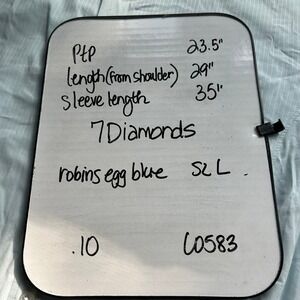 PtP 23.5"
length(from shoulder) 29"
sleeve length 35"
7Diamonds
robins egg blue SZ L
.10 60583